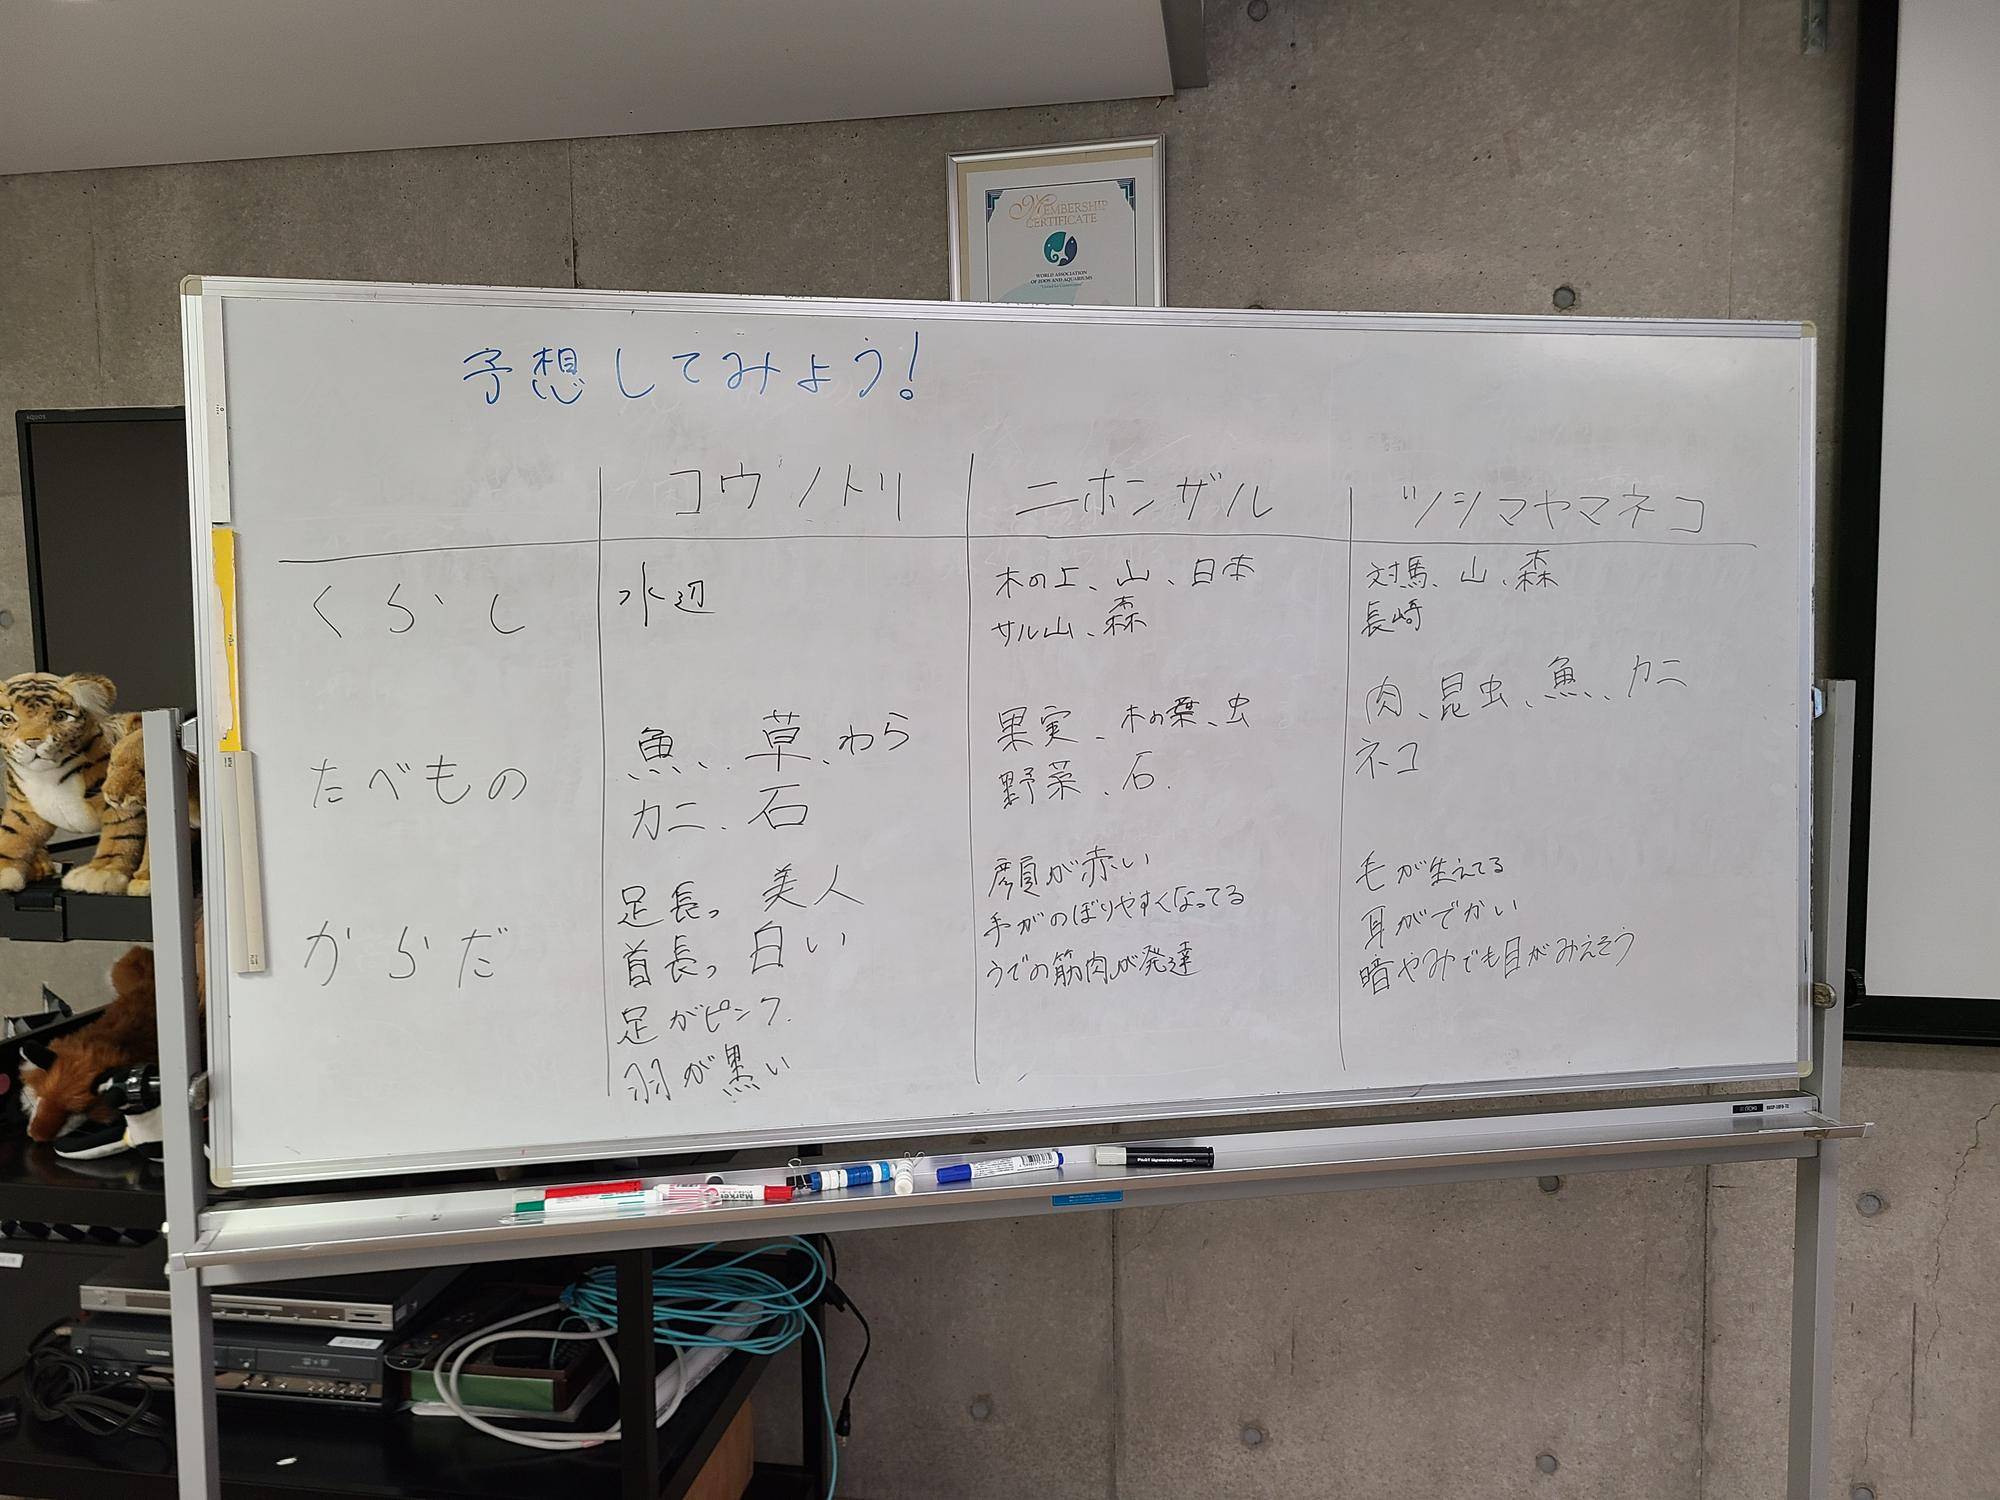 MEMBERSHIP
CERTIFICATE
WORLD ASSOCIATION
OF ZOOS AND AQUARIUMS
予想してみよう!
コウノトリ
ニホンザル
ツシマヤマネコ
くらし
水辺
木の上、山、日本
サル山、森
対馬、山、森
長崎
たべもの
魚、草、わら
カニ、石
果実、木の葉、虫
野菜、石.
肉、昆虫、魚、カニ
ネコ
からだ
足長っ 美人
首長っ 白い
足がピンク.
羽が黒い
顔が赤い
手がのぼりやすくなってる
うでの筋肉が発達
毛が生えてる
耳がでかい
暗やみでも目がみえそう
AQUOS
TOSHIBA
PILOT
Marker